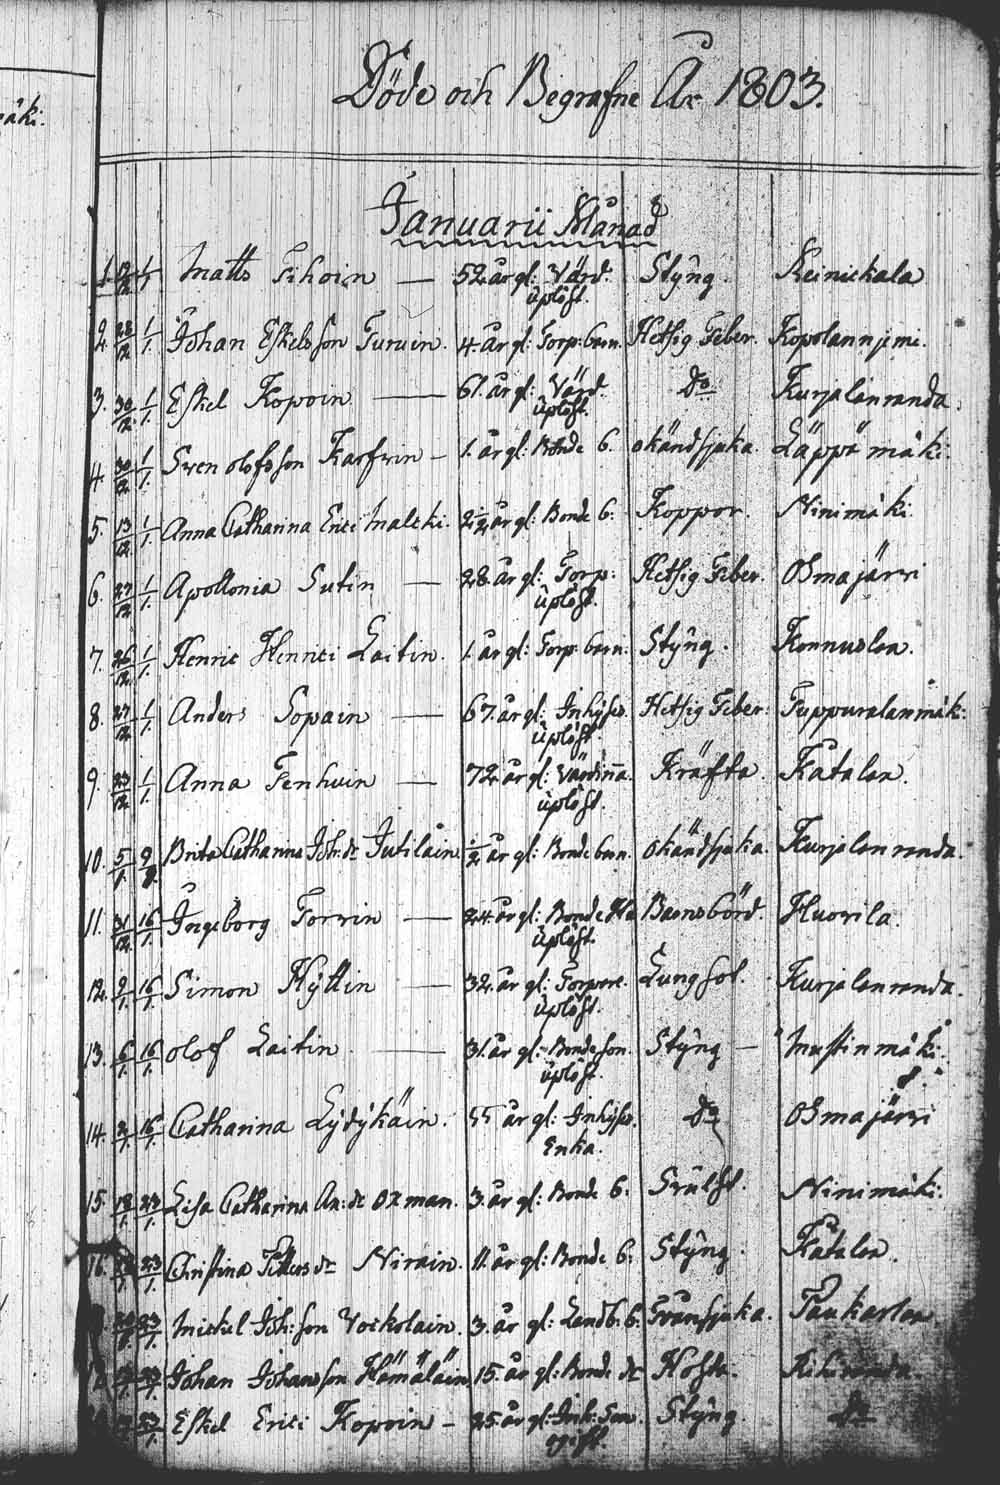 äki.
Döde och Begrafne År 1803.
Januarii Månad
1. 1/1 Matts Tihoin — 52 år gl: Värd. Styng. Reinickala
uplöst.
2. 28/12 1/1. Johan Eskelsson Turuin. 4. år gl: Torp: barn. Hetsig Feber. Kopolanniemi.
3. 30/12. 1/1. Eskel Kopoin — 61. år gl: Värd. Do Kurjalanranda.
uplöst.
4 30/12. 1/1. Sven olofsson Karfvin – 1. år gl: Bonde b. okändsjuka. Läppämäki.
5. 13/12. 1/1. Anna Catharina Erici Malcki. 2 1/2 år gl: Bonde b: Koppor. Ninimäki
6. 27/12. 1/1. Apollonia Sutin — 28. år gl: Torp: Hetsig Feber. Osmajärvi
uplöst.
7. 26/12. 1/1. Henric Henrici Laitin. 1. år gl: Torp: barn: Styng. Konnuslax.
8. 27/12. 1/1. Anders Sopain — 67. år gl: Inhyses. Hetsig Feber: Tuppuralanmäki:
uplöst
9. 23/12. 1/1. Anna Tenhuin — 72. år gl: Värdinna. Kräfta. Katalax.
uplöst.
10. 5/1. 9/1. Brita Catharina Joh: dr Jutilain. 1/2 år gl: Bonde barn. okändsjuka. Kurjalanranda.
11. 31/12. 16/1. Ingeborg Torvin — 24. år gl: Bonde Barnsbörd. Huorila.
uplöst.
12. 9/1. 16/1. Simon Hyttin — 32. år gl: Torpare. Lungsot. Kurjalanranda.
uplöst.
13. 6/1. 16/1. Olof Laitin. — 31. år gl: Bondeson. Styng – Mustinmäki.
uplöst.
14. 16/1. Catharina Lydykäin. 55 år gl: Inhyses. Do Osmajärvi
Enka.
15. 18/1. 23/1. Lisa Catharina An: dr Oxman. 3. år gl: Bonde b: Svulst. Ninimäki.
16. 23/1. Christina Petters dr Nirain. 11. år gl: Bonde b: Styng. Katalax.
23/1. Mickel Joh: son Vockolain. 3. år gl: Landb: b: Paukarlax
Johan Johansson Hämäläin. 15. år gl: Bonde Hosta.
Eskel Erici Kopoin – 25. år gl: Styng. Do